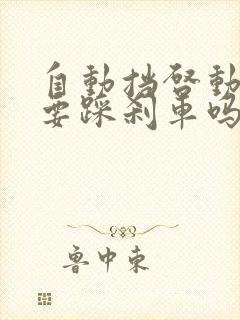 自動挡啓動
要踩刹車嗎
魯中東